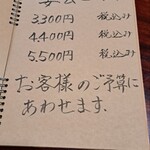 3,300円 税込み
4,400円 税込み
5,500円 税込み
お客様のご予算に
あわせます.